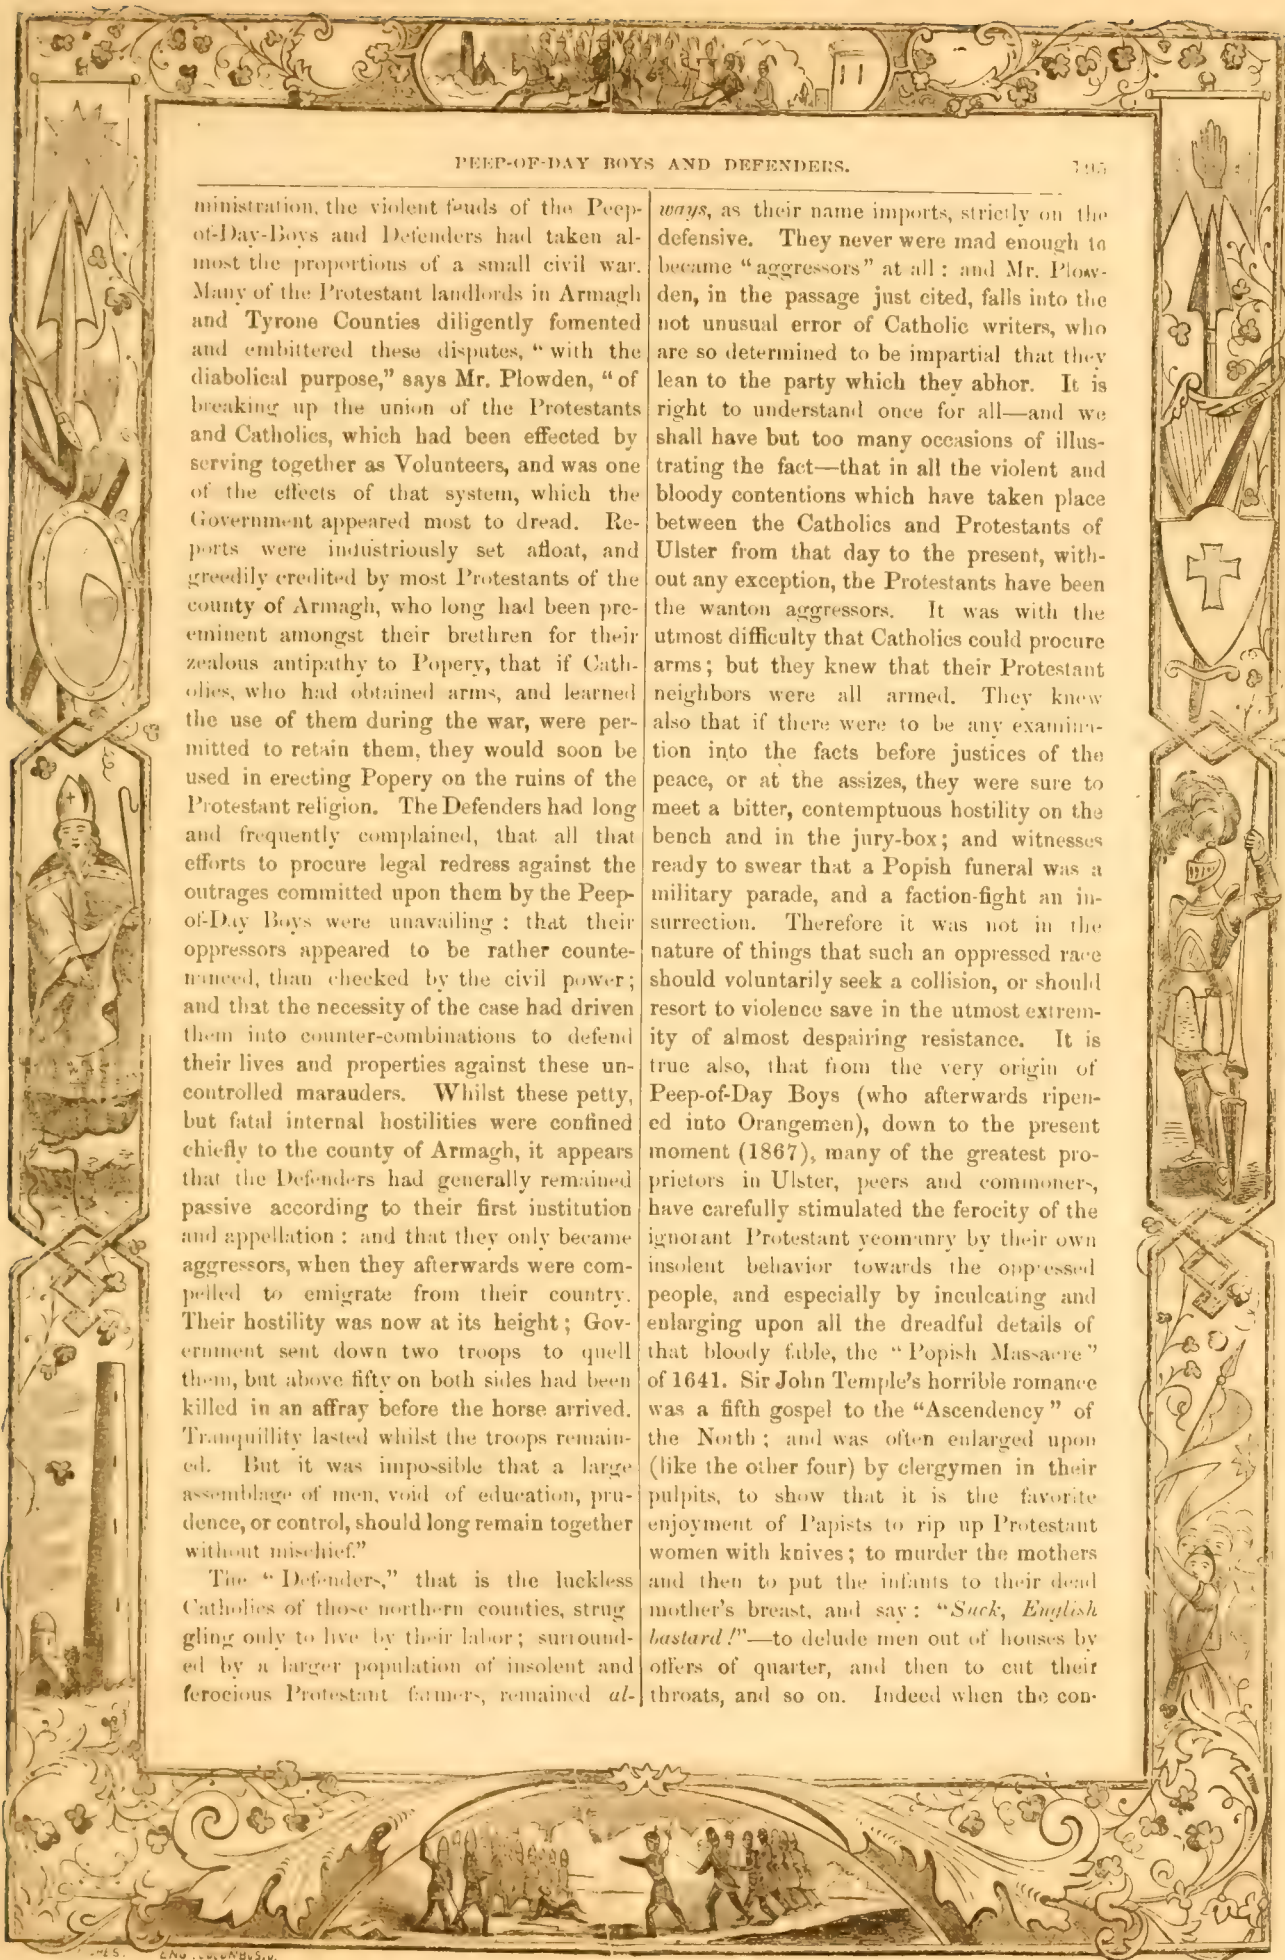 PEEP-OF-DAY BOYS AND DEFENDERS.
ministration, the violent feuds of the Peep-
of-Day-Boys and Defenders had taken al-
most the proportions of a small civil war.
Many of the Protestant landlords in Armagh
and Tyrone Counties diligently fomented
and embittered these disputes, “with the
diabolical purpose,” says Mr. Plowden, “of
breaking up the union of the Protestants
and Catholics, which had been effected by
serving together as Volunteers, and was one
of the effects of that system, which the
Government appeared most to dread. Re-
ports were industriously set afloat, and
greedily credited by most Protestants of the
county of Armagh, who long had been pre-
eminent amongst their brethren for their
zealous antipathy to Popery, that if Cath-
olics, who had obtained arms, and learned
the use of them during the war, were per-
mitted to retain them, they would soon be
used in erecting Popery on the ruins of the
Protestant religion. The Defenders had long
and frequently complained, that all that
efforts to procure legal redress against the
outrages committed upon them by the Peep-
of-Day Boys were unavailing : that their
oppressors appeared to be rather counte-
nanced, than checked by the civil power;
and that the necessity of the case had driven
them into counter-combinations to defend
their lives and properties against these un-
controlled marauders. Whilst these petty,
but fatal internal hostilities were confined
chiefly to the county of Armagh, it appears
that the Defenders had generally remained
passive according to their first institution
and appellation : and that they only became
aggressors, when they afterwards were com-
pelled to emigrate from their country.
Their hostility was now at its height; Gov-
ernment sent down two troops to quell
them, but above fifty on both sides had been
killed in an affray before the horse arrived.
Tranquillity lasted whilst the troops remain-
ed. But it was impossible that a large
assemblage of men, void of education, pru-
dence, or control, should long remain together
without mischief.”
The “Defenders,” that is the luckless
Catholics of those northern counties, strug
gling only to live by their labor; surround-
ed by a larger population of insolent and
ferocious Protestant farmers, remained al-
ways, as their name imports, strictly on the
defensive. They never were mad enough to
became “aggressors” at all : and Mr. Plow-
den, in the passage just cited, falls into the
not unusual error of Catholic writers, who
are so determined to be impartial that they
lean to the party which they abhor. It is
right to understand once for all—and we
shall have but too many occasions of illus-
trating the fact—that in all the violent and
bloody contentions which have taken place
between the Catholics and Protestants of
Ulster from that day to the present, with-
out any exception, the Protestants have been
the wanton aggressors. It was with the
utmost difficulty that Catholics could procure
arms; but they knew that their Protestant
neighbors were all armed. They knew
also that if there were to be any examina-
tion into the facts before justices of the
peace, or at the assizes, they were sure to
meet a bitter, contemptuous hostility on the
bench and in the jury-box; and witnesses
ready to swear that a Popish funeral was a
military parade, and a faction-fight an in-
surrection. Therefore it was not in the
nature of things that such an oppressed race
should voluntarily seek a collision, or should
resort to violence save in the utmost extrem-
ity of almost despairing resistance. It is
true also, that from the very origin of
Peep-of-Day Boys (who afterwards ripen-
ed into Orangemen), down to the present
moment (1867), many of the greatest pro-
prietors in Ulster, peers and commoners,
have carefully stimulated the ferocity of the
ignorant Protestant yeomanry by their own
insolent behavior towards the oppressed
people, and especially by inculcating and
enlarging upon all the dreadful details of
that bloody fable, the “Popish Massacre”
of 1641. Sir John Temple’s horrible romance
was a fifth gospel to the “Ascendency” of
the North; and was often enlarged upon
(like the other four) by clergymen in their
pulpits, to show that it is the favorite
enjoyment of Papists to rip up Protestant
women with knives; to murder the mothers
and then to put the infants to their dead
mother’s breast, and say: “Suck, English
bastard!”—to delude men out of houses by
offers of quarter, and then to cut their
throats, and so on. Indeed when the con-